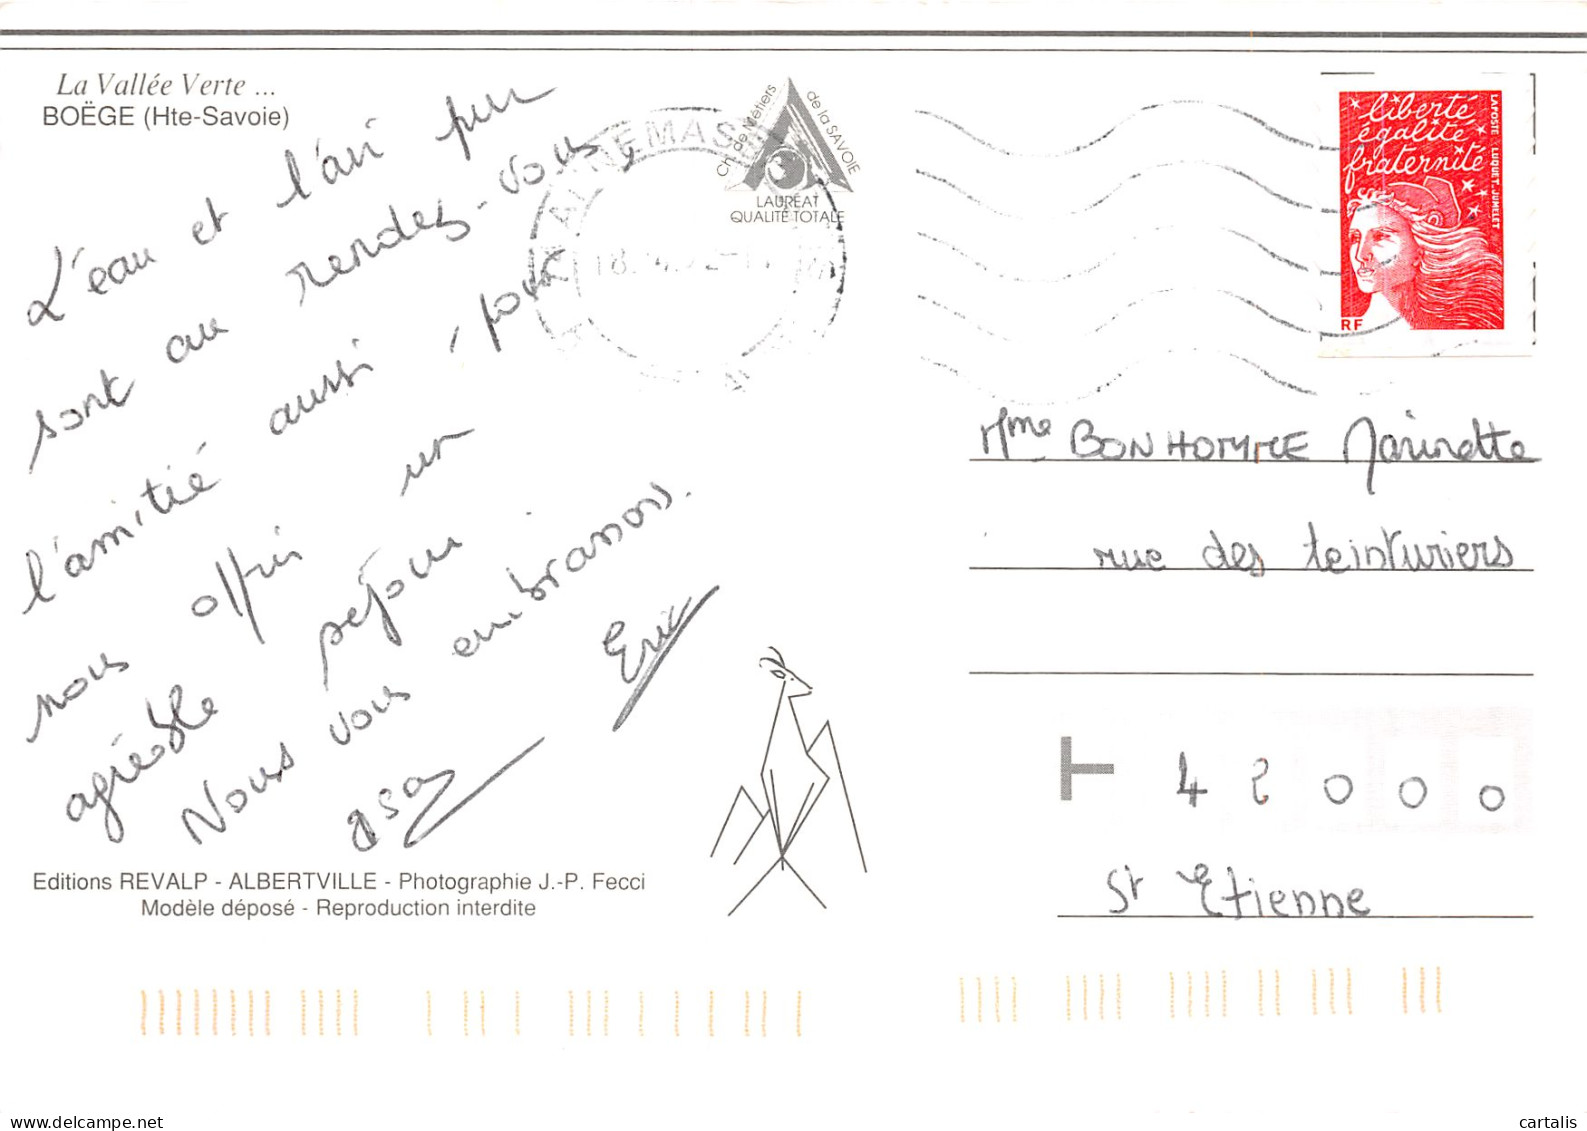 La Vallée Verte ...
BOËGE (Hte-Savoie)
L'eau et l'air pur
sont au rendez-vous,
l'amitié aussi, pour
nous offrir un
agréable séjour
Nous vous embrassons.
Eric
Editions REVALP - ALBERTVILLE - Photographie J.-P. Fecci
Modèle déposé - Reproduction interdite
Ch. de Métiers
de la SAVOIE
LAURÉAT
QUALITÉ TOTALE
liberté
égalité
fraternité
LAPOSTE LUQUET-JUMELET
RF
Mme BONHOMME Marinette
rue des teinturiers
42000
St Etienne
delcampe.net
cartalis